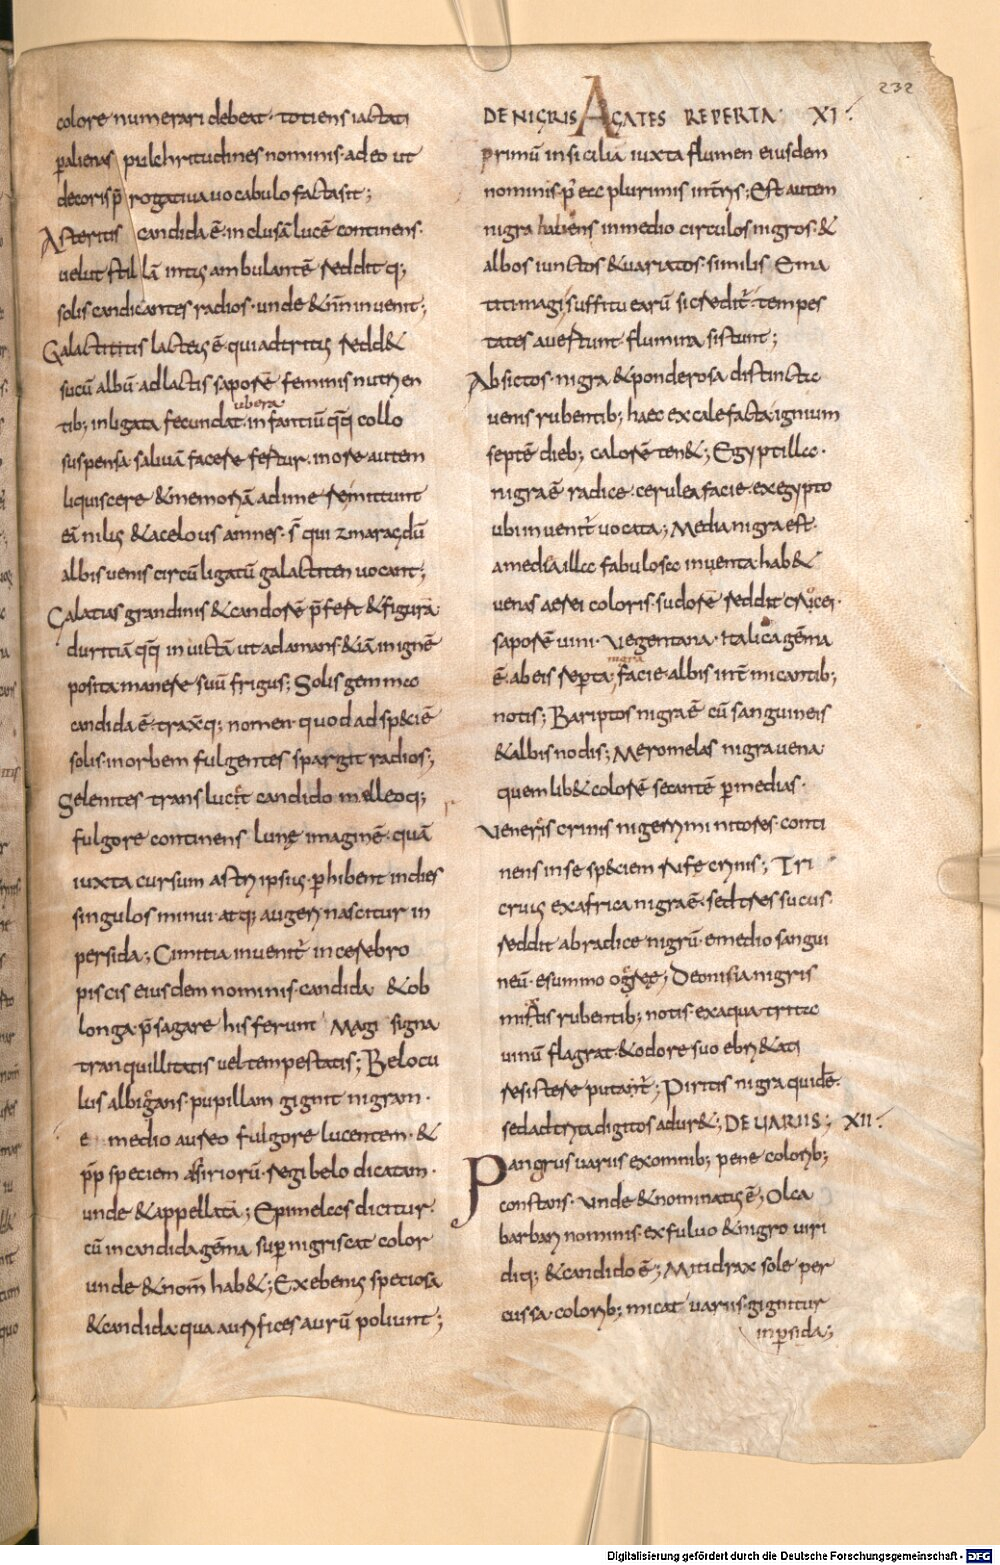 232
colore numerari debeat · totiens iactati
palienas pulchritudines nominis · adeo ut
decoris p̄rogatiua uocabulo facta sit ;
Asteritis candida ē · inclusā lucē continens ·
uelut stillā intus ambulantē reddit q;
solis candicantes radios · unde & nn̄ inuenit ;
Galactitis lacteus ē · qui adtritus redd&
sucū albū · ad lactis saporē · feminis nutrien
ubera
tib; inligata fecundat · infantiū qq̄ collo
suspensa saliuā facere fertur · in ore autem
liquiscere & memoriā adimere · mittunt
eā nilus & acelous amnes · s̄ qui zmaragdū
albis uenis circūligatū galactiten uocant ;
Calatias grandinis & candorē p̄fert & figurā
duritiā qq̄ inuictā ut adamans · & iā in ignē
posita manere suū frigus ; Solis gemma
candida ē · trax̄q; nomen · quod ad sp&iē
solis · in orbem fulgentes spargit radios ;
Selenites translucet candido melleoq;
fulgore continens lunę imaginē · quā
iuxta cursum astri ipsius · phibent in dies
singulos minui atq; augeri nascitur in
persida ; Cimitia inuenit̄ in cerebro
piscis eiusdem nominis · candida & ob
longa · p̄sagare his ferunt magi signa
tranquillitatis uel tempestatis ; Belocu
lus albigans · pupillam gignit nigram ·
e medio aureo fulgore lucentem · &
pp̄ speciem assiriorū · regi belo dicatam ·
unde & appellata ; Epimelas dicitur ·
cū in candida gēma sup nigriscat color
unde & nom̄ hab& ; Exebenus speciosa
& candida · qua aurifices aurū poliunt ;
DE NIGRIS AGATES REPERTA XI
primū in sicilia iuxta flumen eiusdem
nominis · p̄ ea plurimis in terris ; Est autem
nigra habens in medio circulos nigros · &
albos iunctos & uariatos · similis Ema
titi · magi suffitu earū si creditr̄ · tempes
tates auertunt · flumina sistunt ;
Absictos · nigra & ponderosa distincta
uenis rubentib; haec excalefacta ignium
septē dieb; calorē ten& ; Egyptilla ·
nigra ē radice · cerulea facie · ex egypto
ubi inuenit̄ uocata ; Media nigra est ·
a media illa fabulosa inuenta · hab&
uenas aerei coloris · sudorē reddit crocei ·
saporē uini · Vegentana · Italica gēma
nigra
ē · a beis reperta ; facie · albis int̄micantib;
notis ; Bariptos nigra ē cū sanguineis
& albis nodis ; Meromelas nigra uena
quemlib& colorē secante p medias ·
Veneris crinis nigerrimi nitores · conti
nens in se sp&iem rufe crinis ; Tri
crus ex africa nigra ē · sed tres sucus ·
reddit ab radice nigrū · e medio sangui
neū · e summo ogree ; Deonisia nigris
mixtis rubentib; notis · ex aqua trita
uinū flagrat · & odore suo ebri&ati
resistere putatr̄ ; Piritis nigra quidē ·
sed adtrita digitos adur& ; DE UARIIS ; XII
Pangrus uarius ex omnib; pene colorib;
constans · unde & nominatus ē ; Olca
barbari nominis · ex fuluo & nigro uiri
diq; & candido ē ; Mitidrax sole per
cussa · colorib; micat uariis · gignitur
in persida ;
Digitalisierung gefördert durch die Deutsche Forschungsgemeinschaft - DFG